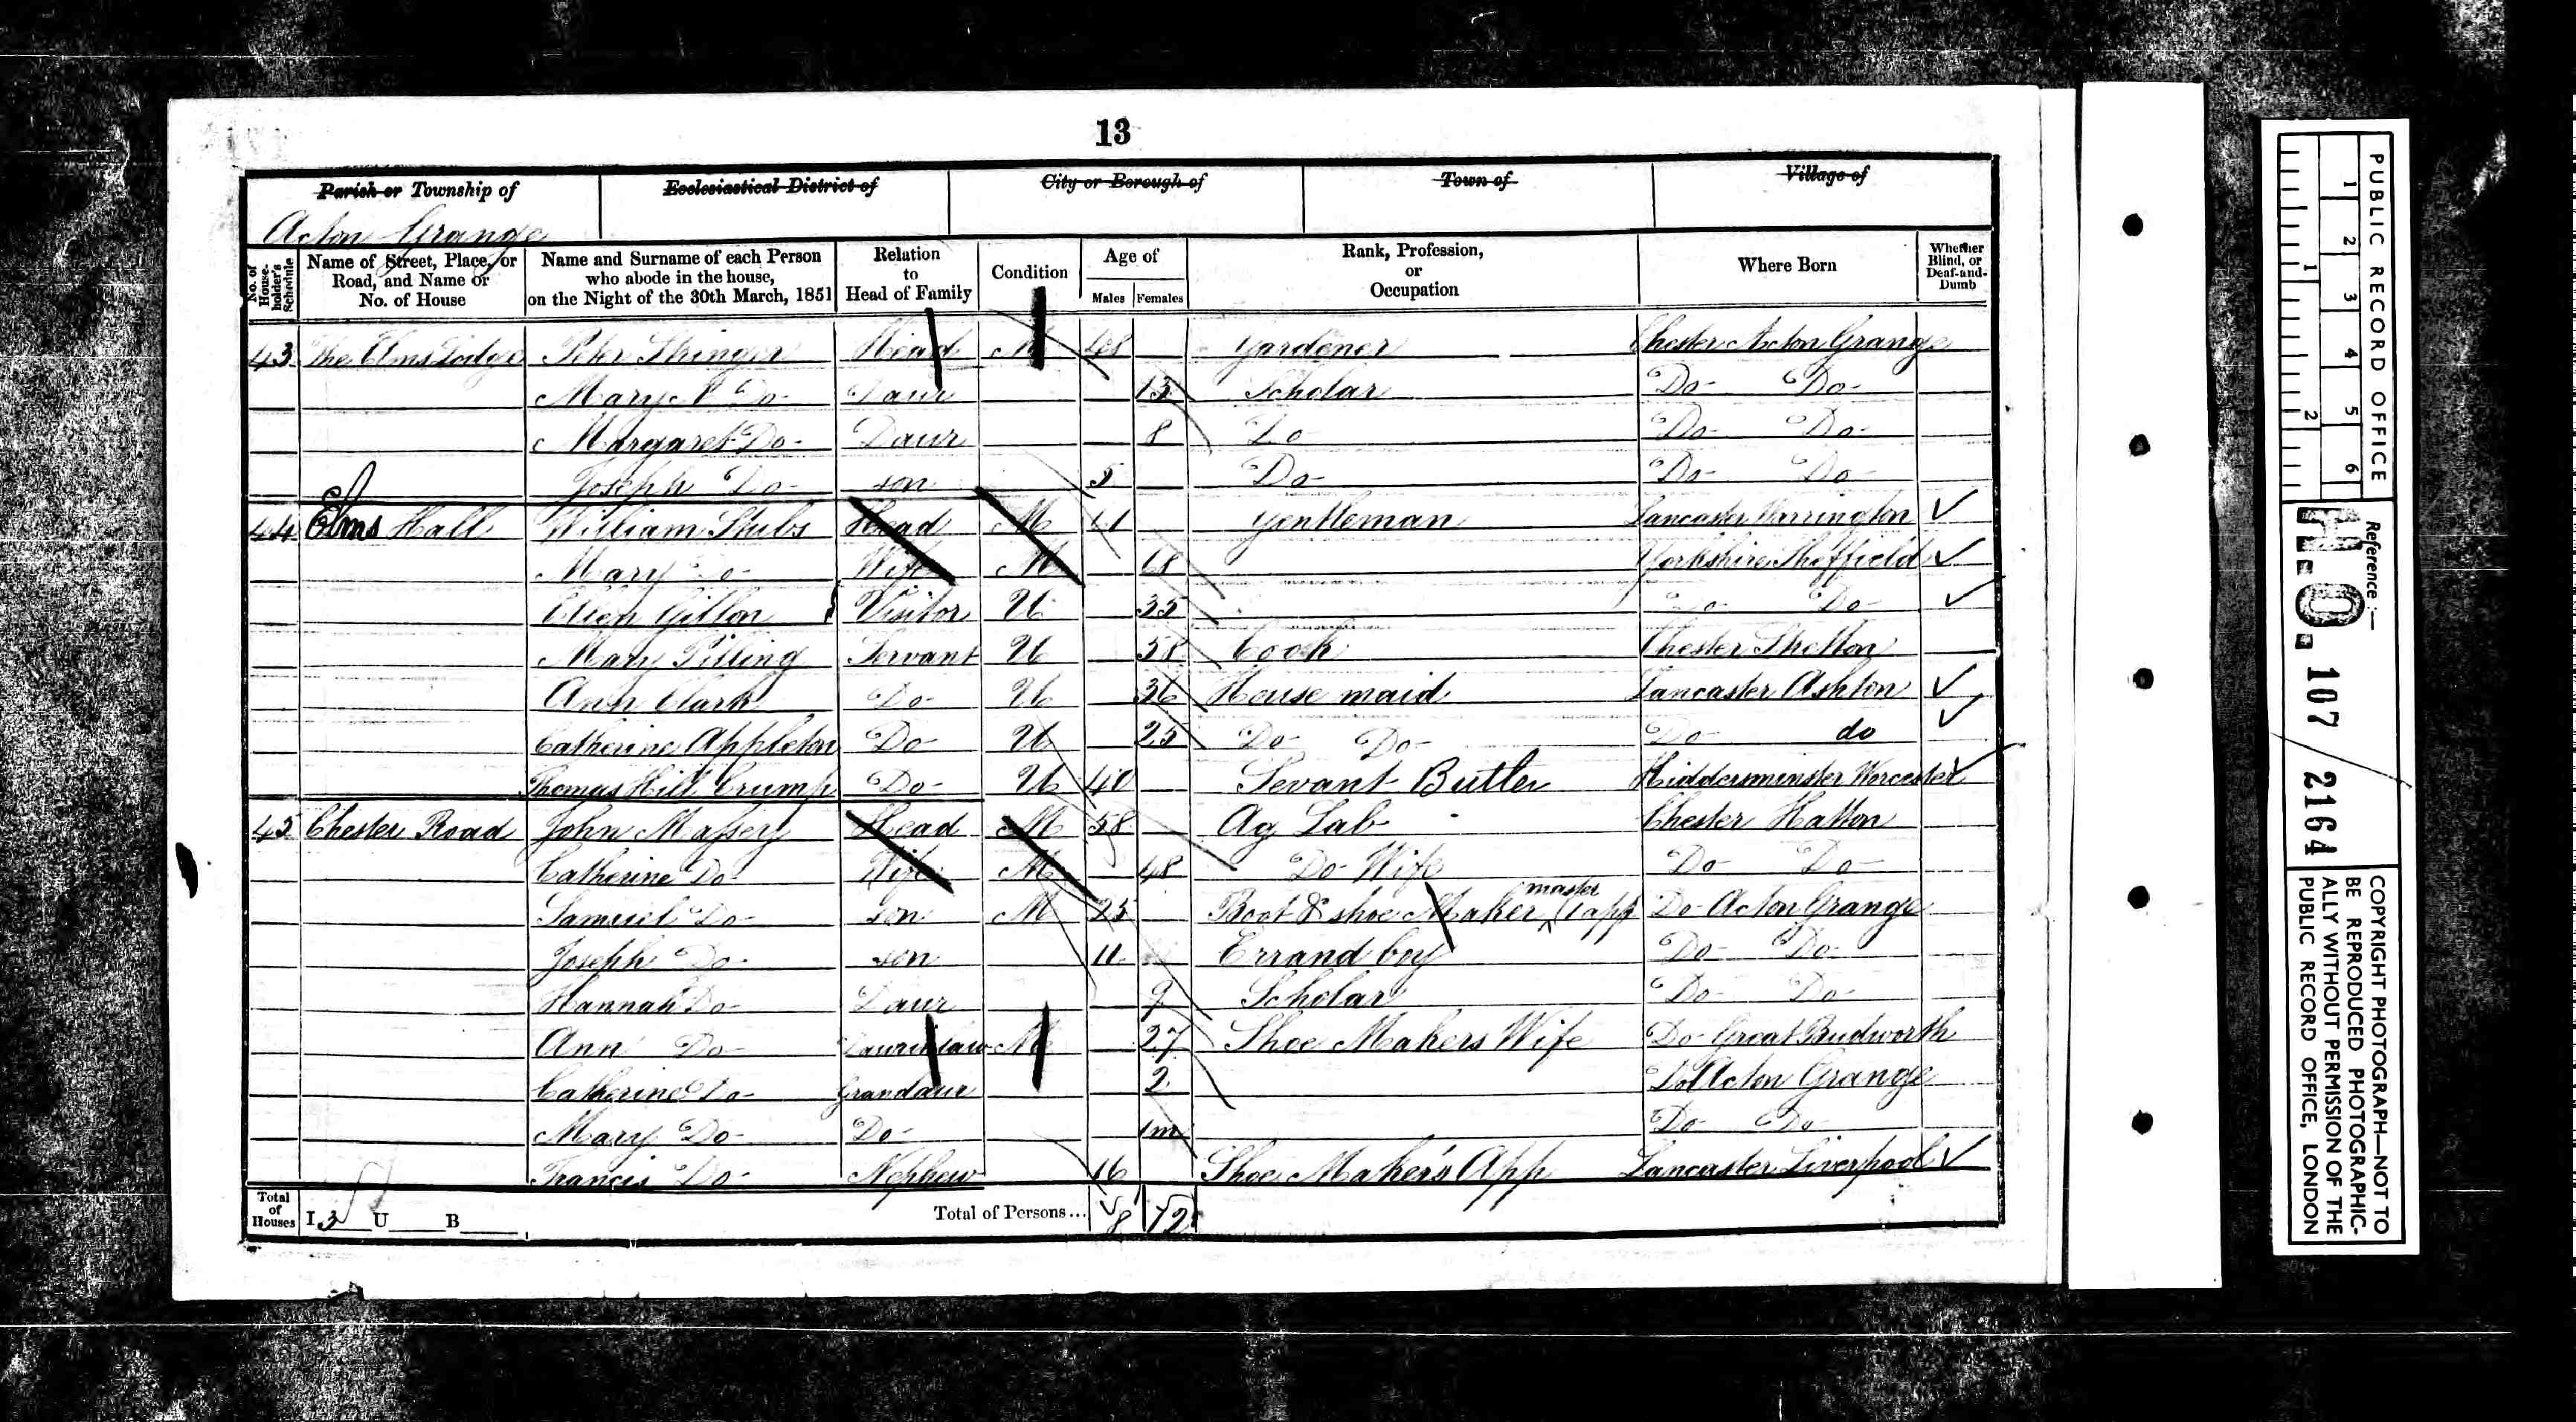 13
Parish or Township of Ecclesiastical District of City or Borough of Town of Village of
Acton Grange
No. of House-holder's Schedule Name of Street, Place, or Road, and Name or No. of House Name and Surname of each Person who abode in the house, on the Night of the 30th March, 1851 Relation to Head of Family Condition Age of Males Females Rank, Profession, or Occupation Where Born Whether Blind, or Deaf-and-Dumb
43 The Elms Lodge Peter Stringer Head M 48 Gardener Chester Acton Grange
Mary A Do Daur 13 Scholar Do Do
Margaret Do Daur 8 Do Do Do
Joseph Do son 5 Do Do Do
44 Elms Hall William Stubs Head M Gentleman Lancaster Warrington
Mary Do Wife M 68 Yorkshire Sheffield
Ellen Visitor U 35 Do Do
Mary Pilling Servant U 58 Cook Chester
Ann Clark Do U 36 House maid Lancaster Ashton
Catherine Appleton Do U 25 Do Do Do do
Thomas Hill Crump Do U 40 Servant Butler Kiddersminster Worcester
45 Chester Road John Massey Head M 58 Ag Lab Chester Hatton
Catherine Do Wife M 48 Do Wife Do Do
Samuel Do son M 25 Boot & shoe Maker master (1 app Do Acton Grange
Joseph Do son 11 Errand boy Do Do
Hannah Do Daur 9 Scholar Do Do
Ann Do Daurinlaw M 27 Shoe Makers Wife Do Great Budworth
Catherine Do Grandaur 2 Do Acton Grange
Mary Do Do 1m Do Do
Francis Do Nephew 16 Shoe Maker's App Lancaster Liverpool
Total of Houses I 3 U B Total of Persons... 8 12
PUBLIC RECORD OFFICE
1 2 3 4 5 6
1 2
Reference:—
H.O. 107 / 2164
COPYRIGHT PHOTOGRAPH—NOT TO BE REPRODUCED PHOTOGRAPHICALLY WITHOUT PERMISSION OF THE PUBLIC RECORD OFFICE, LONDON